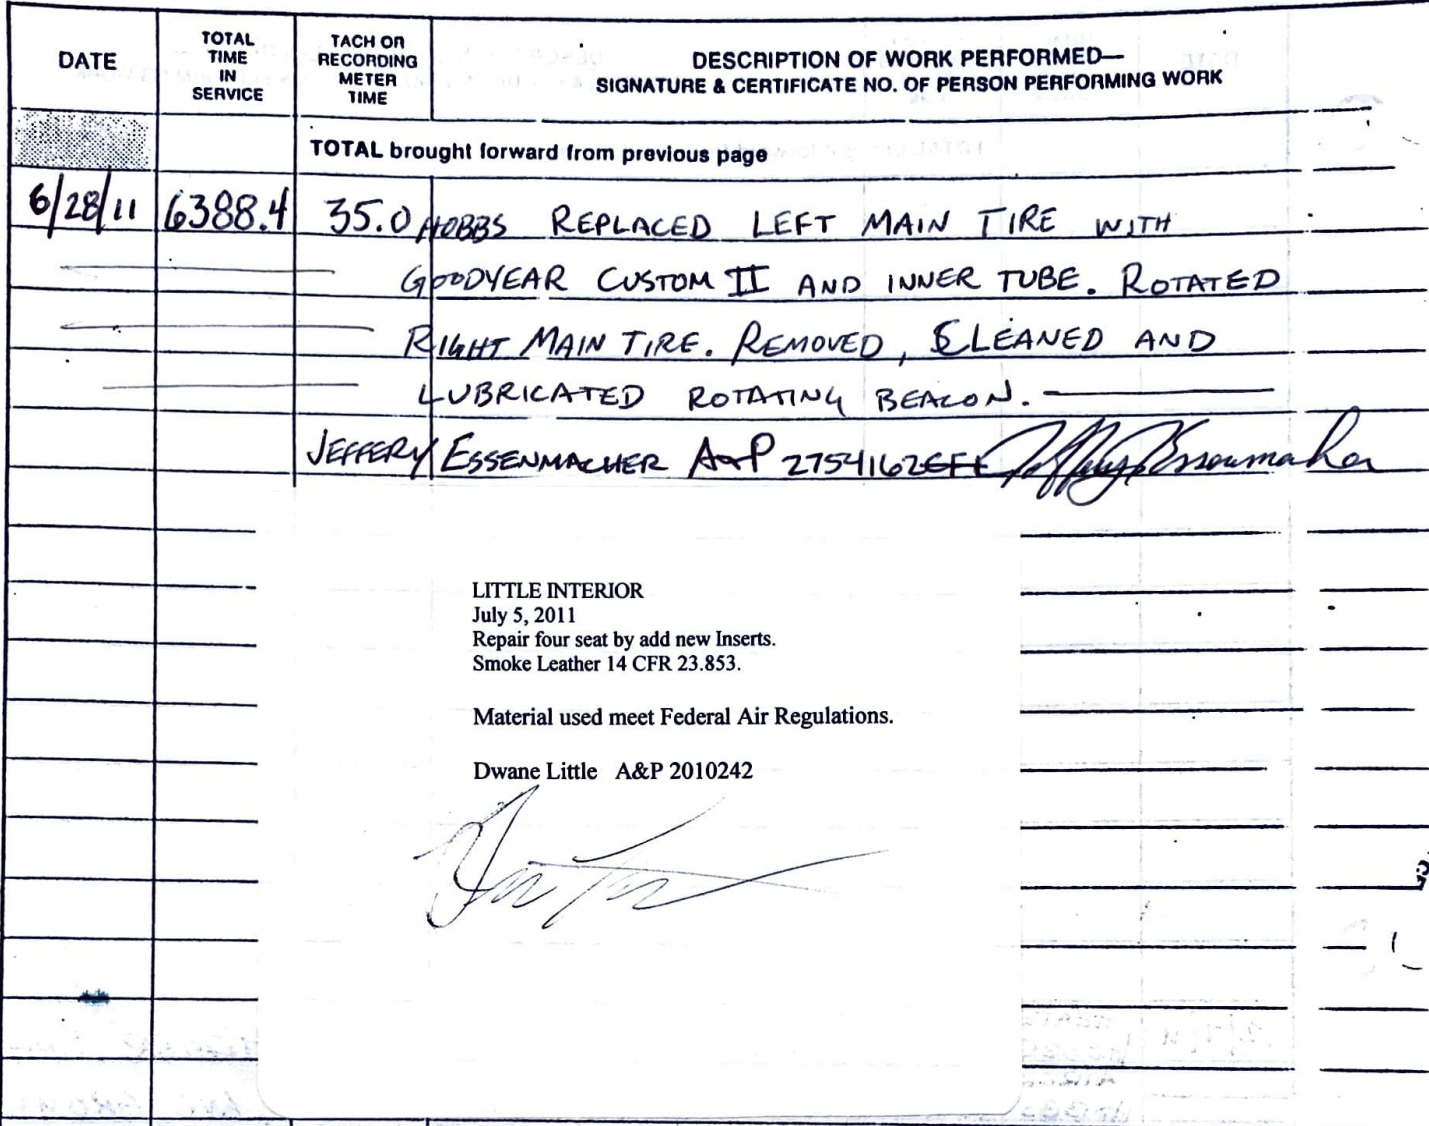 DATE
TOTAL
TIME
IN
SERVICE
TACH OR
RECORDING
METER
TIME
DESCRIPTION OF WORK PERFORMED—
SIGNATURE & CERTIFICATE NO. OF PERSON PERFORMING WORK
TOTAL brought forward from previous page
6/28/11 6388.4 35.0 HOBBS REPLACED LEFT MAIN TIRE WITH
GOODYEAR CUSTOM II AND INNER TUBE. ROTATED
RIGHT MAIN TIRE. REMOVED, CLEANED AND
LUBRICATED ROTATING BEACON.
JEFFERY ESSENMACHER A&P 2754162 Jeffery Essenmacher
LITTLE INTERIOR
July 5, 2011
Repair four seat by add new Inserts.
Smoke Leather 14 CFR 23.853.
Material used meet Federal Air Regulations.
Dwane Little A&P 2010242